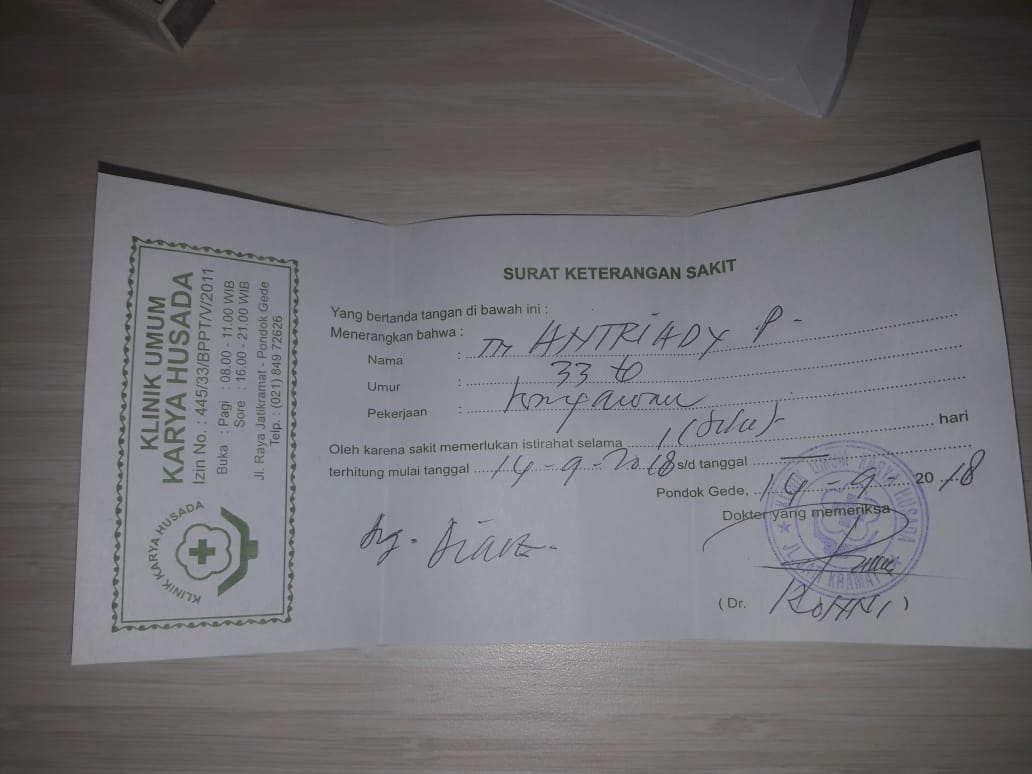 KLINIK UMUM
KARYA HUSADA
Izin No. : 445/33/BPPT/V/2011
Buka : Pagi : 08.00 - 11.00 WIB
Sore : 16.00 - 21.00 WIB
Jl. Raya Jatikramat - Pondok Gede
Telp. : (021) 849 72626
KLINIK KARYA HUSADA
SURAT KETERANGAN SAKIT
Yang bertanda tangan di bawah ini :
Menerangkan bahwa :
Nama : Tn ANTRIADY P -
Umur : 33 th
Pekerjaan : karyawan
Oleh karena sakit memerlukan istirahat selama 1 (satu) - hari
terhitung mulai tanggal 14-9-2018 s/d tanggal —
Pondok Gede, 14-9- 2018
Dokter yang memeriksa
KLINIK UMUM KARYA HUSADA
(Dr. ROHNI)